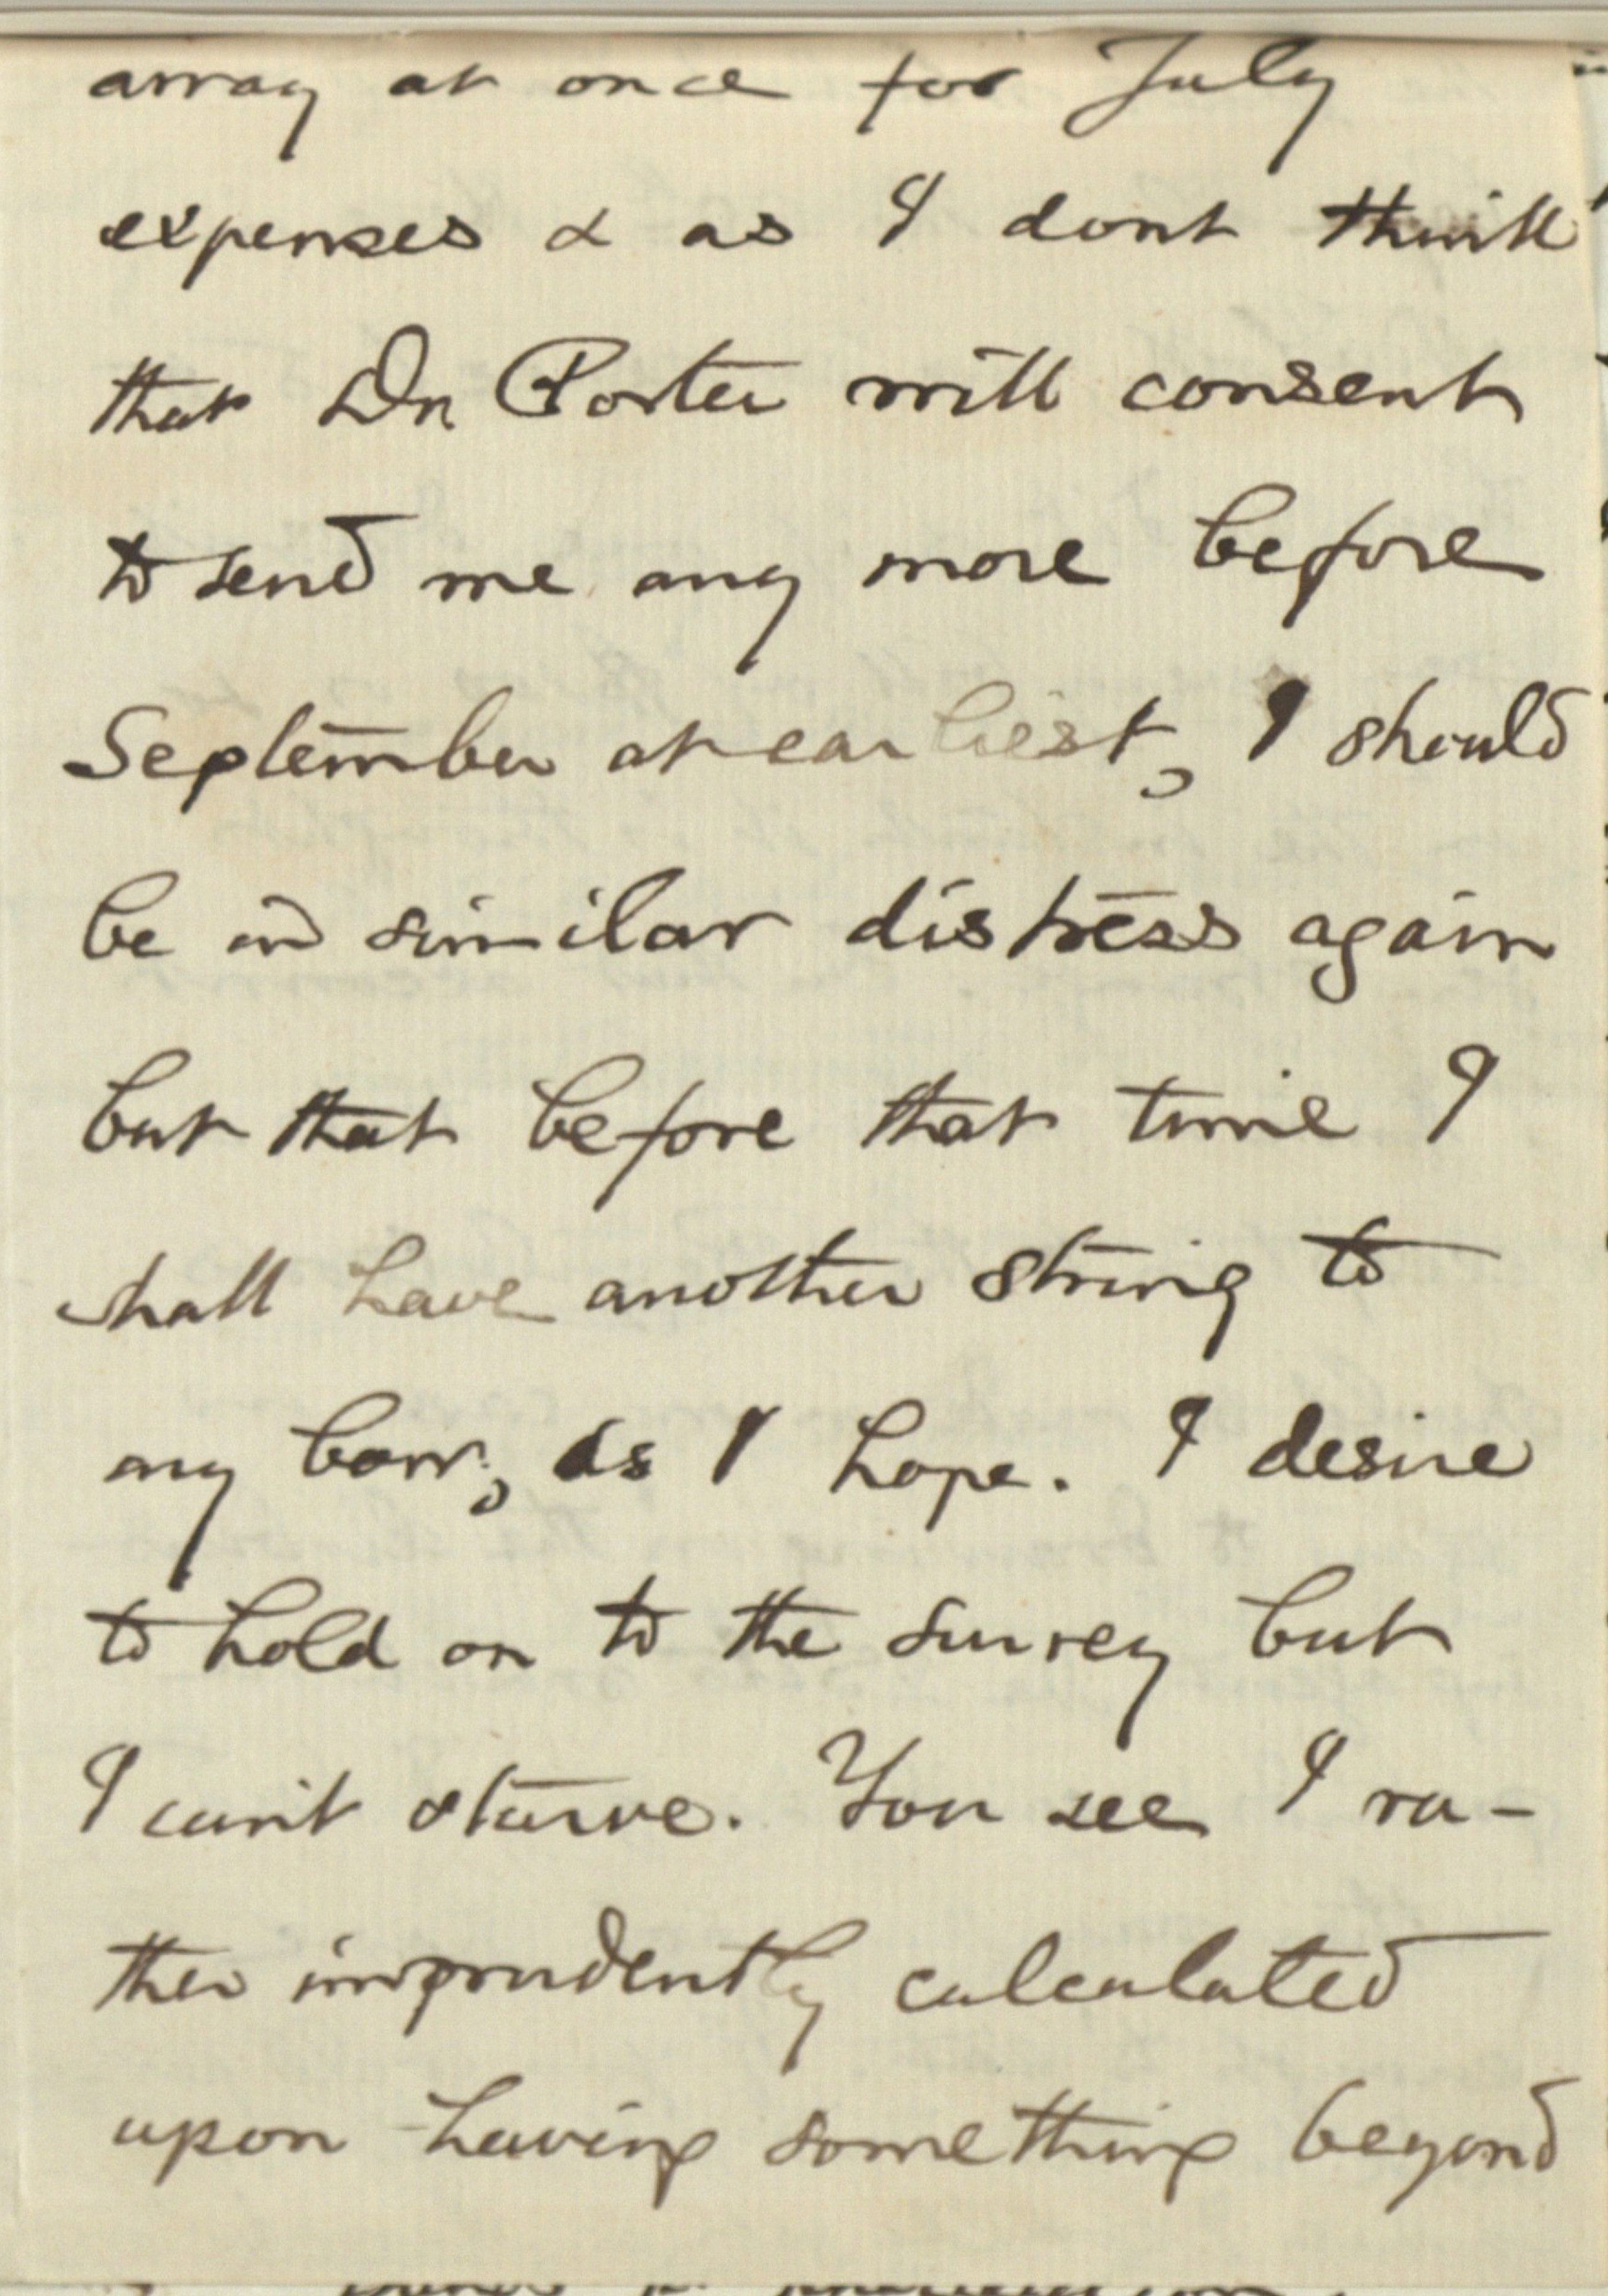 away at once for July
expenses & as I dont think
that Dr. Porter will consent
to send me any more before
September at earliest, I should
be in similar distress again
but that before that time I
shall have another string to
my bow, as I hope. I desire
to hold on to the survey but
I can't starve. You see I ra-
ther imprudently calculated
upon having something beyond